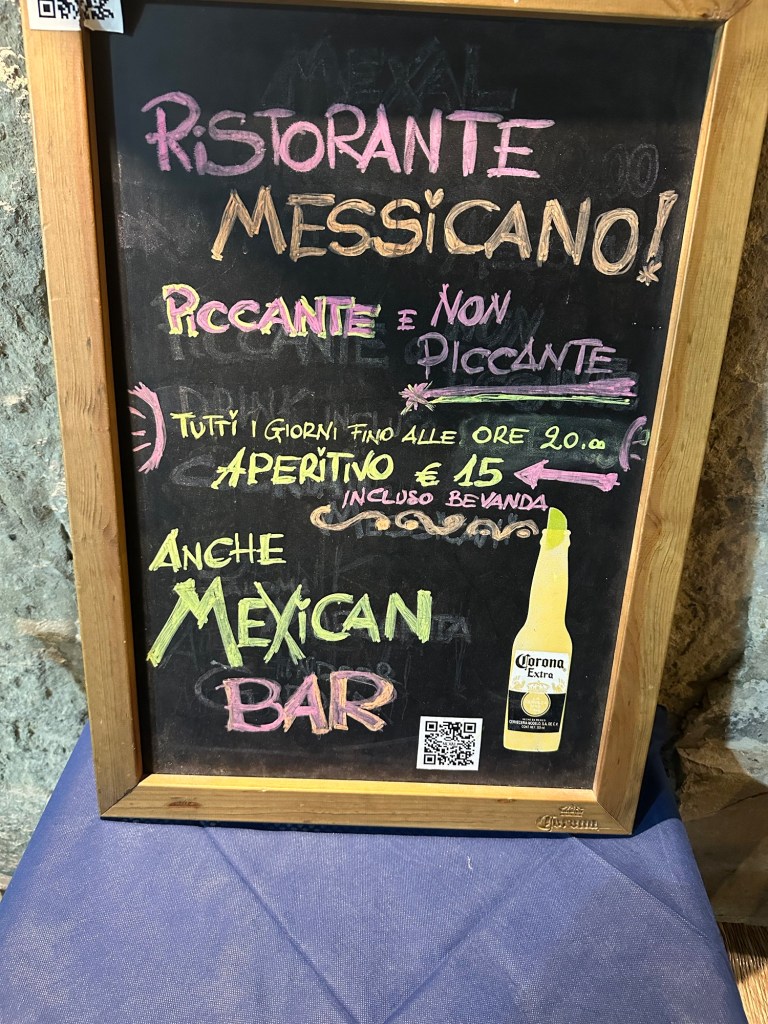 MEXAL
RiSTORANTE
MESSiCANO!
PiCCANTE E NON
PICCANTE
TUTTi I GIORNI FINO ALLE ORE 20.00
APERiTiVO € 15
INCLUSO BEVANDA
ANCHE
MEXiCAN
BAR
Corona
Extra
Corona